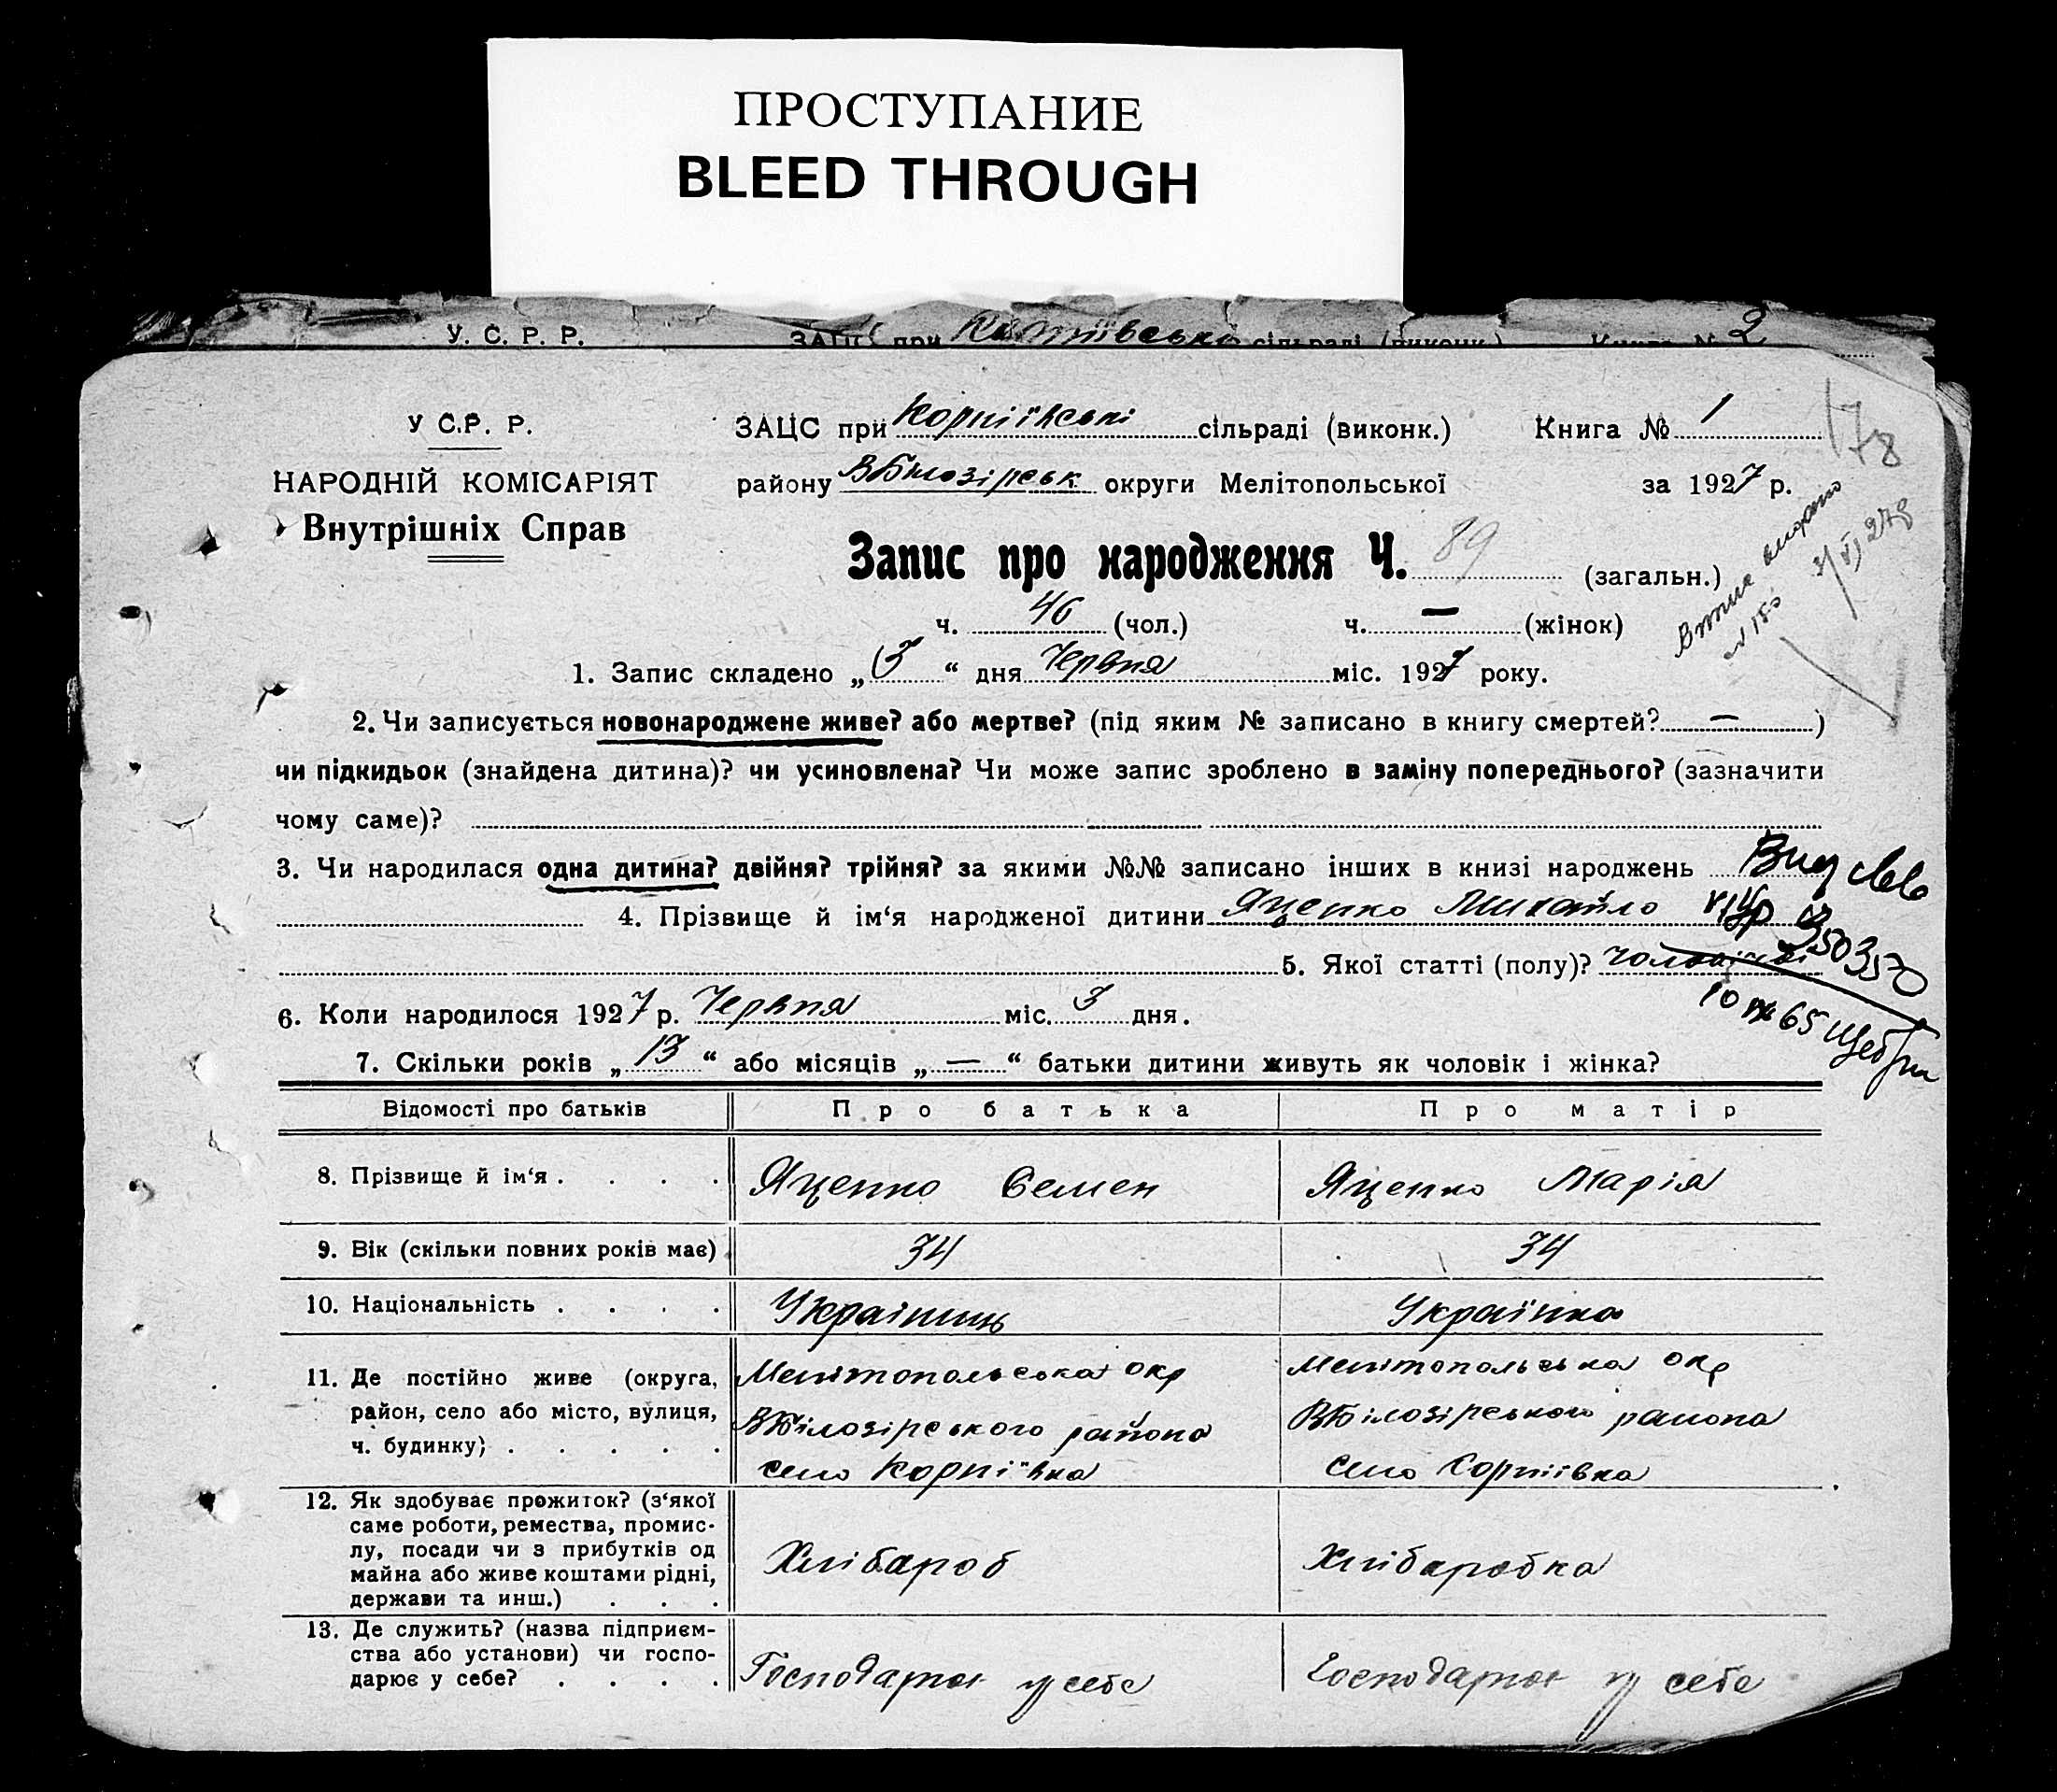 ПРОСТУПАНИЕ
BLEED THROUGH
У. С. Р. Р. ЗАЦС при сільраді (виконк.) Книга № 2
У С.Р. Р. ЗАЦС при Корніївські сільраді (виконк.) Книга № 1
178
НАРОДНІЙ КОМІСАРІЯТ району ВБілозірськ округи Мелітопольської за 1927 р.
Внутрішніх Справ
Запис про народження Ч. 89 (загальн.)
ч. 46 (чол.) ч. — (жінок)
1. Запис складено „ 3 “ дня Червня міс. 1927 року.
2. Чи записується новонароджене живе? або мертве? (під яким № записано в книгу смертей? — )
чи підкидьок (знайдена дитина)? чи усиновлена? Чи може запис зроблено в заміну попереднього? (зазначити
чому саме)?
3. Чи народилася одна дитина? двійня? трійня? за якими №№ записано інших в книзі народжень
4. Прізвище й ім‘я народженої дитини Яценко Михайло
5. Якої статті (полу)?
350350
6. Коли народилося 1927 р. Червня міс. 3 дня.
7. Скільки років „ 13 “ або місяців „ — “ батьки дитини живуть як чоловік і жінка?
Відомості про батьків Про батька Про матір
8. Прізвище й ім‘я . . . . Яценко Семен Яценко Марія
9. Вік (скільки повних років має) 34 34
10. Національність . . . . Українець Українка
11. Де постійно живе (округа, Мелітопольська окр Мелітопольська окр
район, село або місто, вулиця, ВБілозірського района ВБілозірського района
ч. будинку) . . . . . село Корніївка село Корніївка
12. Як здобуває прожиток? (з‘якої
саме роботи, ремества, промис-
лу, посади чи з прибутків од Хлібароб Хлібаробка
майна або живе коштами рідні,
держави та инш.) . . .
13. Де служить? (назва підприєм-
ства або установи) чи госпо-
дарює у себе? . . . . Господарює у себе Господарює у себе